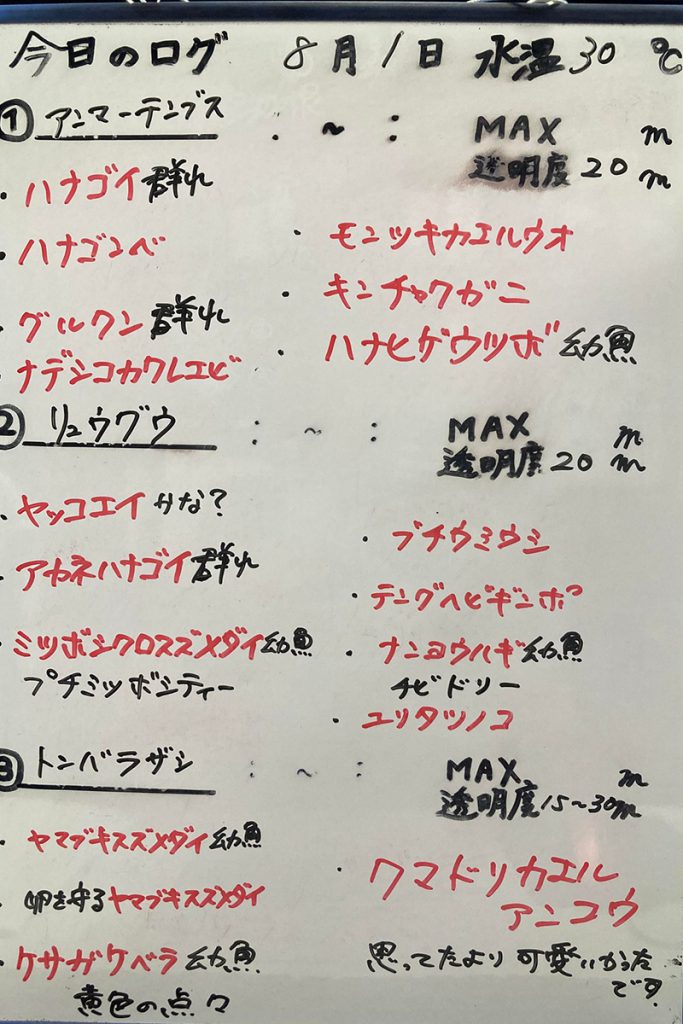 今日のログ 8月1日 水温30℃
① アンマーテンブス . ~ : MAX m
透明度20m
・ハナゴイ群れ
・ハナゴンベ
・グルクン群れ
・ナデシコカクレエビ
・モンツキカエルウオ
・キンチャクガニ
・ハナヒゲウツボ幼魚
② リュウグウ : ~ : MAX m
透明度20m
・ヤッコエイかな?
・アカネハナゴイ群れ
・ミツボシクロスズメダイ幼魚
プチミツボシティー
・ブチウミウシ
・テングヘビギンポ
・ナンヨウハギ幼魚
チビドリー
・ユリタツノコ
③ トンバラザシ : ~ : MAX m
透明度15~30m
・ヤマブキスズメダイ幼魚
・卵を守るヤマブキスズメダイ
・ケサガケベラ幼魚
黄色の点々
・クマドリカエル
アンコウ
思ってたより可愛いかった
です